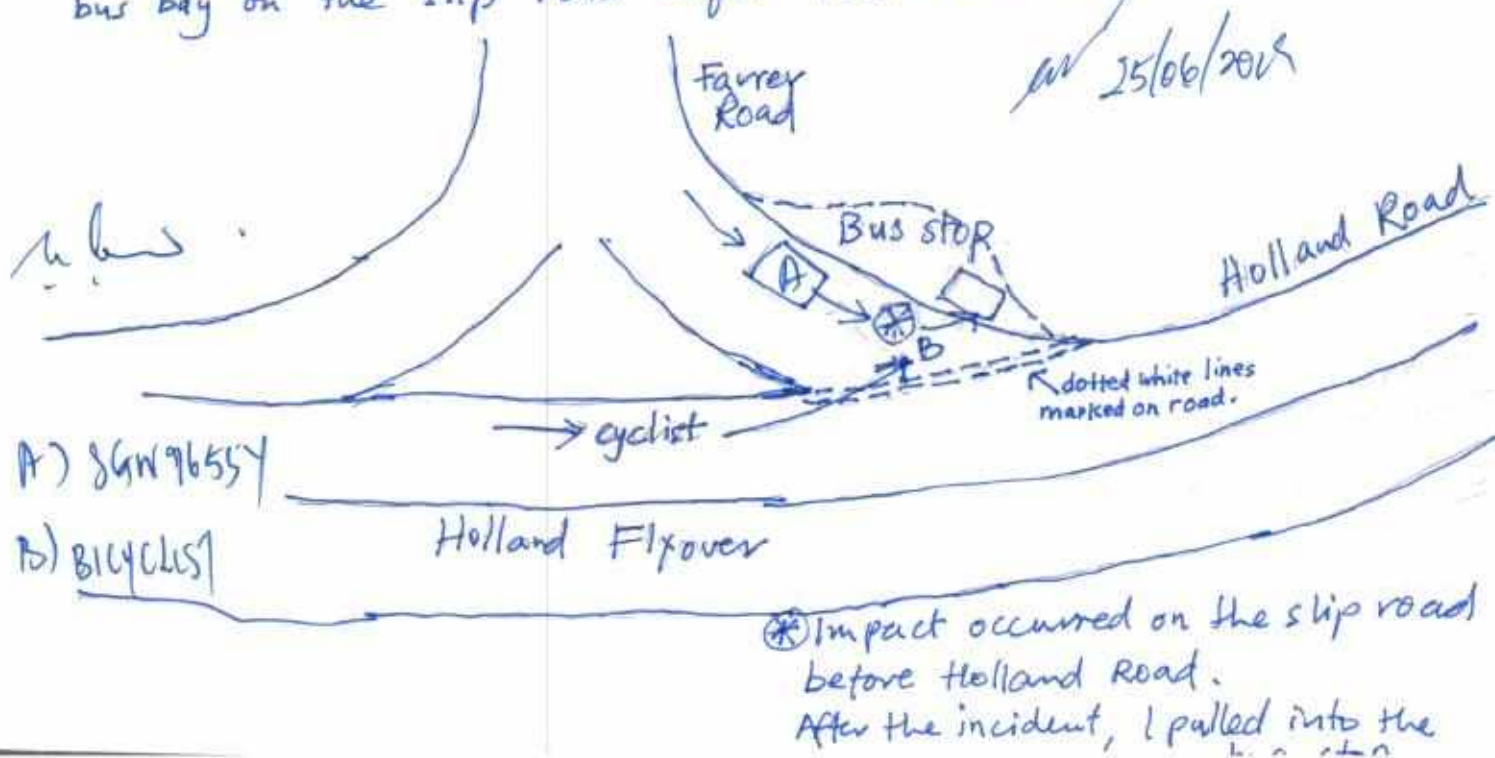 bus bay on the slip road
25/06/20
Farrer
Road
Bus stop
A
B
Holland Road
dotted white lines
marked on road.
cyclist
A) SGW9655Y
B) BICYCLIST
Holland Flyover
Impact occurred on the slip road
before Holland Road.
After the incident, I pulled into the
bus stop